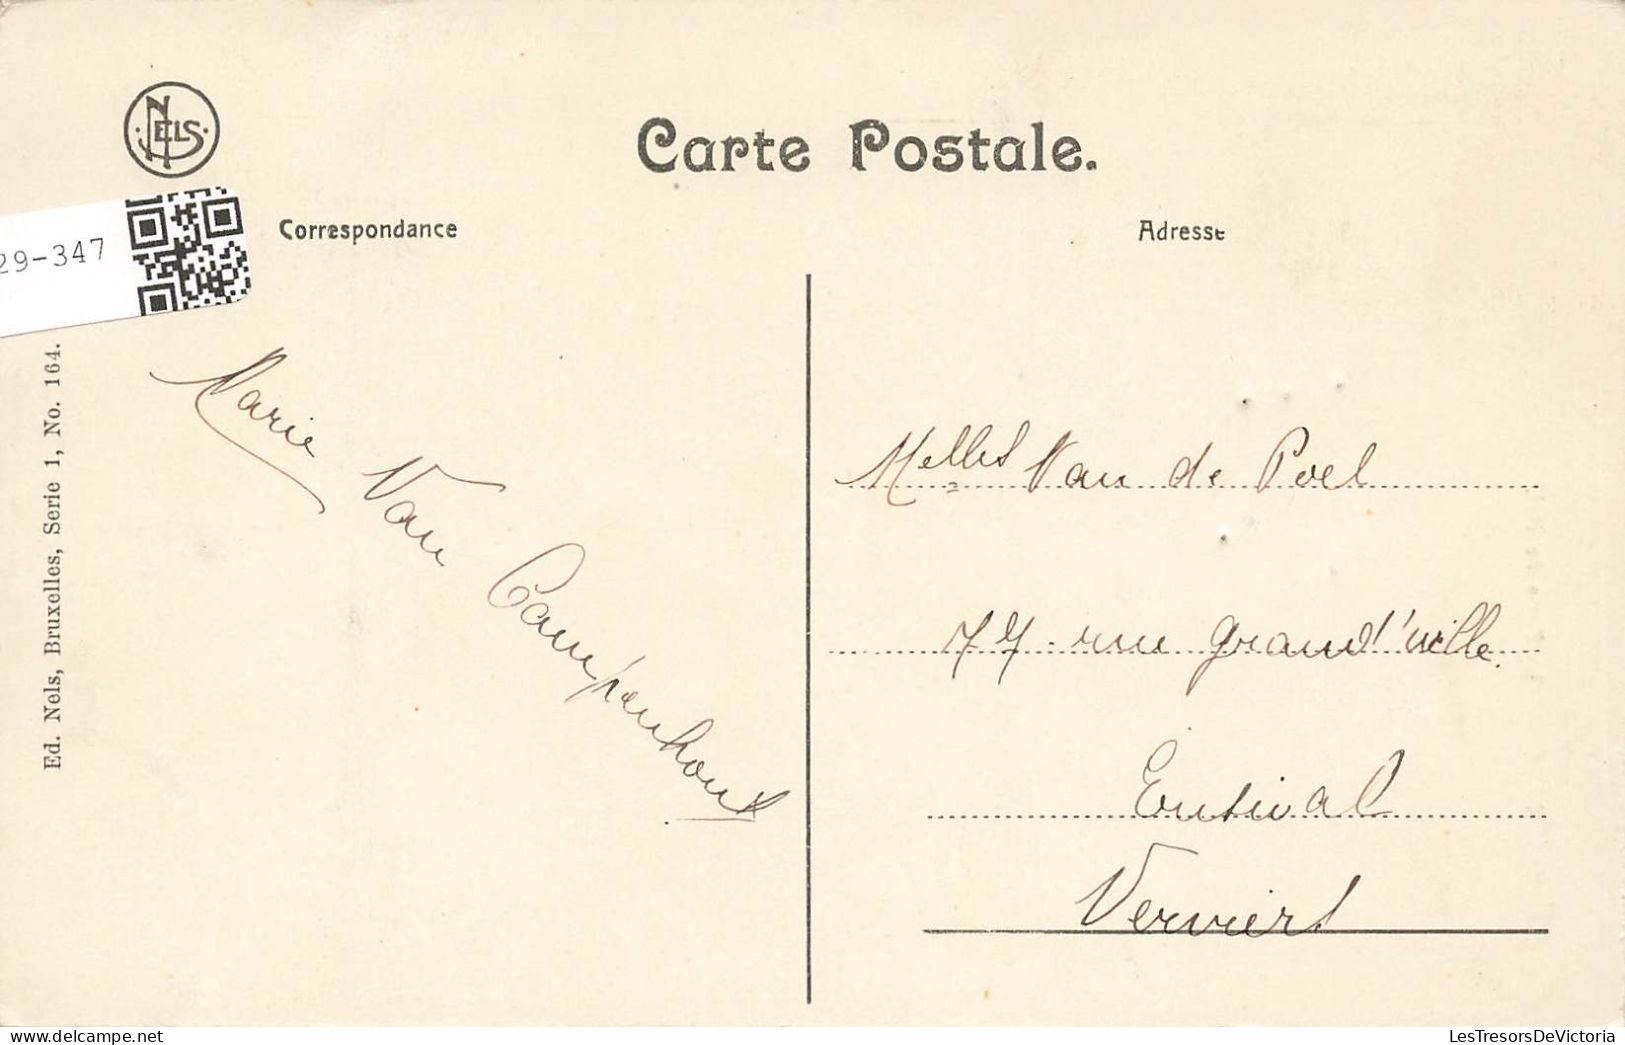 NELS
Carte Postale.
Correspondance
Adresse
29-347
Ed. Nels, Bruxelles, Serie 1, No. 164.
Marie Van Campenhout
Melles Van de Poel
77 rue Grand'ville
Ensival
Verviers
LesTresorsDeVictoria